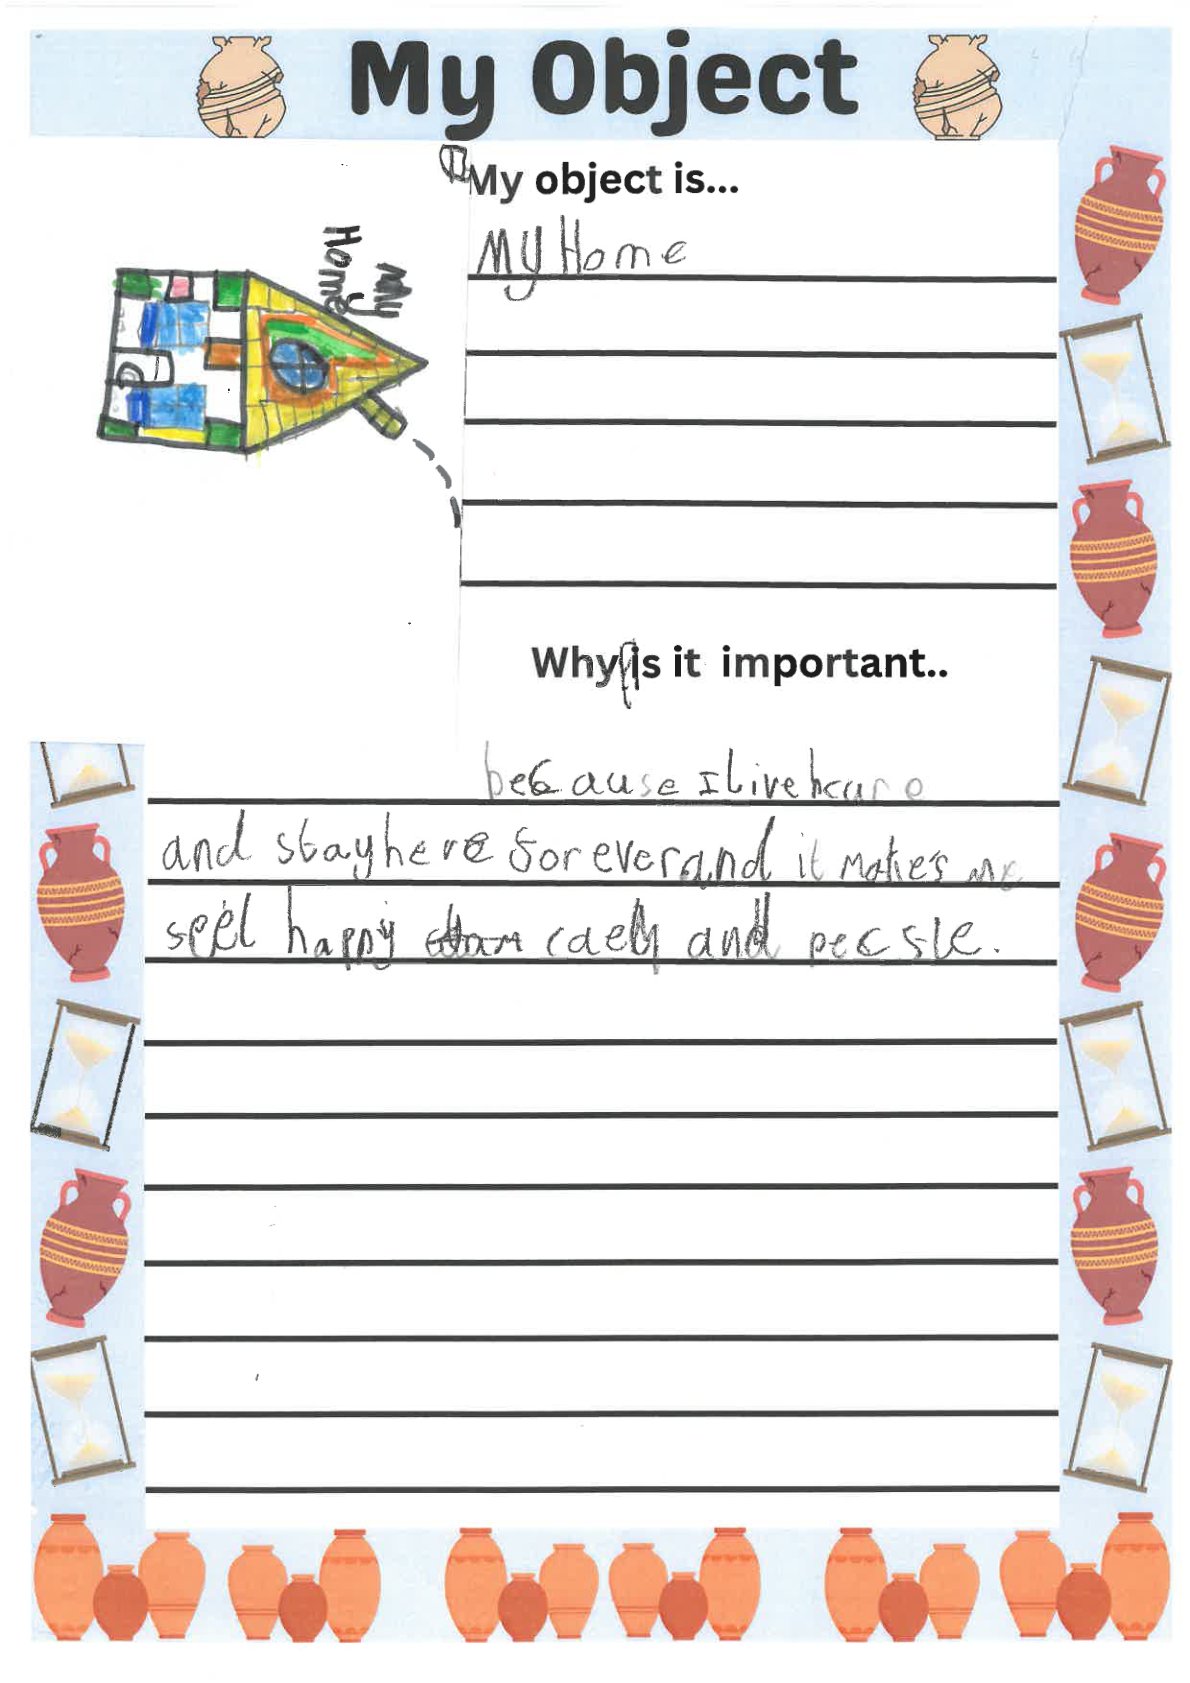 My Object
My object is...
My Home
My
Home
Why is it important..
because I live heare
and stay here forever and it makes me
feel happy and